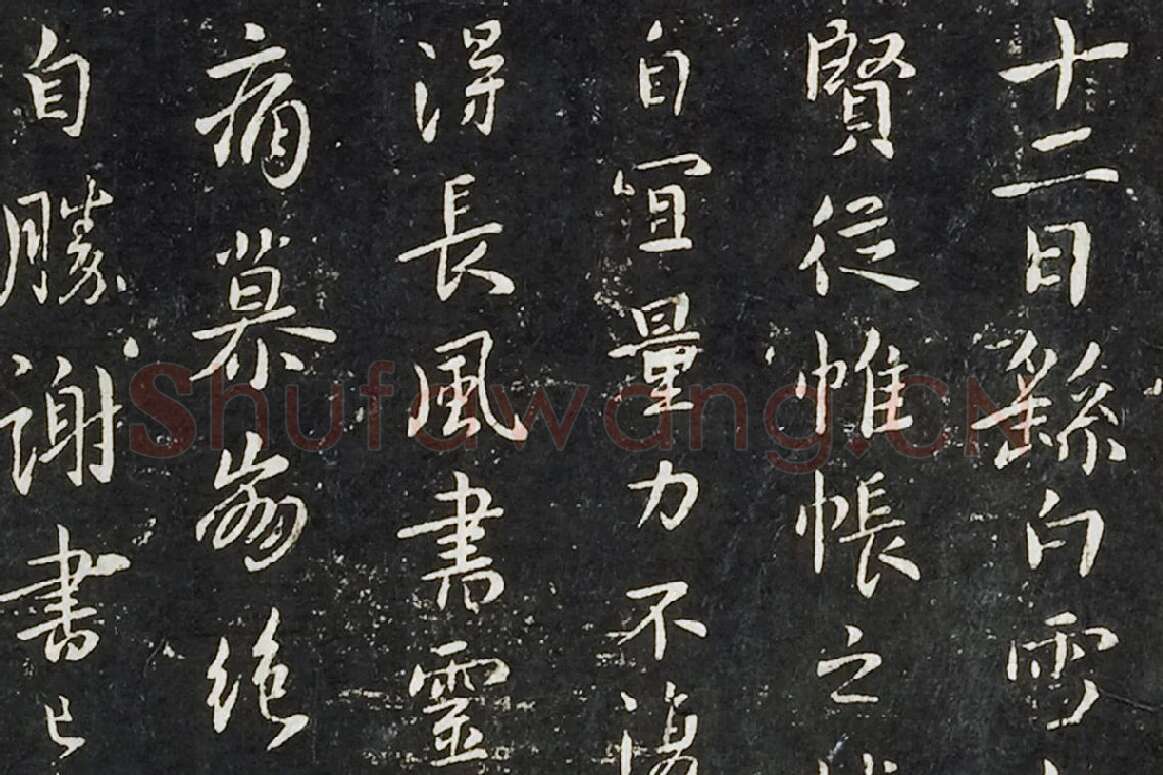 十二日繇白雪
賢從帷帳之
自宜量力不
得長風書靈
痛慕崩絕
自勝謝書已
Shufawang.CN